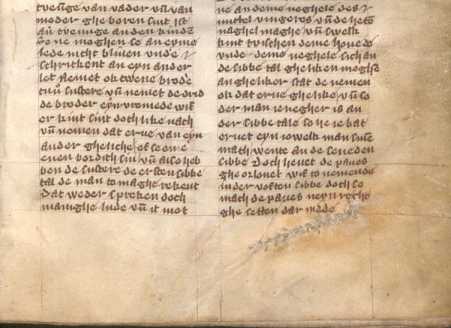 tvenge van vader vn̄ van
moder ghe boren sint ist
tvenige an den kindē
ne moghen se an eyme
lede nicht bliuen vnde
schrikkent an eyn ander
let Nemet ok twene brode
sustere vn̄ nemet de drid
de broder eyn vromede wif
er kint sint doch like nach
vn̄ nemen dat erue van eyn
ander ghelike of se eme
euen bordich sin vn̄ also heb
ben de sustere de ersten sibbe
tal de man to maghe rekent
Dat weder spreken doch
manighe lude vn̄ it mot
ne an deme neghele des
vingeres vn̄ de
naghel maghe vn̄ swelk
kint tvischen deme houede
vnde deme neghele sich an
de sibbe tal gheliken moghē
an gheliker stat de nemen
ok dat erue ghelike vn̄ so
der man ie negher is an
der sibbe tale so he ie bat
eruet eyn iowelk man sine
mach wente an de seueden
sibbe Doch heuet de paues
gheorlouet wif to nemende
inder voften sibbe doch so
mach de paues neyn recht
ghe setten dar mede